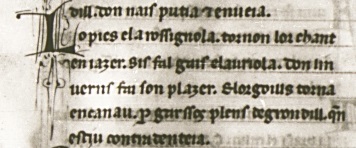 dill. don nais putia & enueia.
Lo pics e la rossignola. tornon lor chant
en iazer. Sis fai guis e lauriola. don lin
uerns fai son plazer. E lorgoius torna
en canau. per garssez plens de gron dill. qn
es tiu contradenteia.